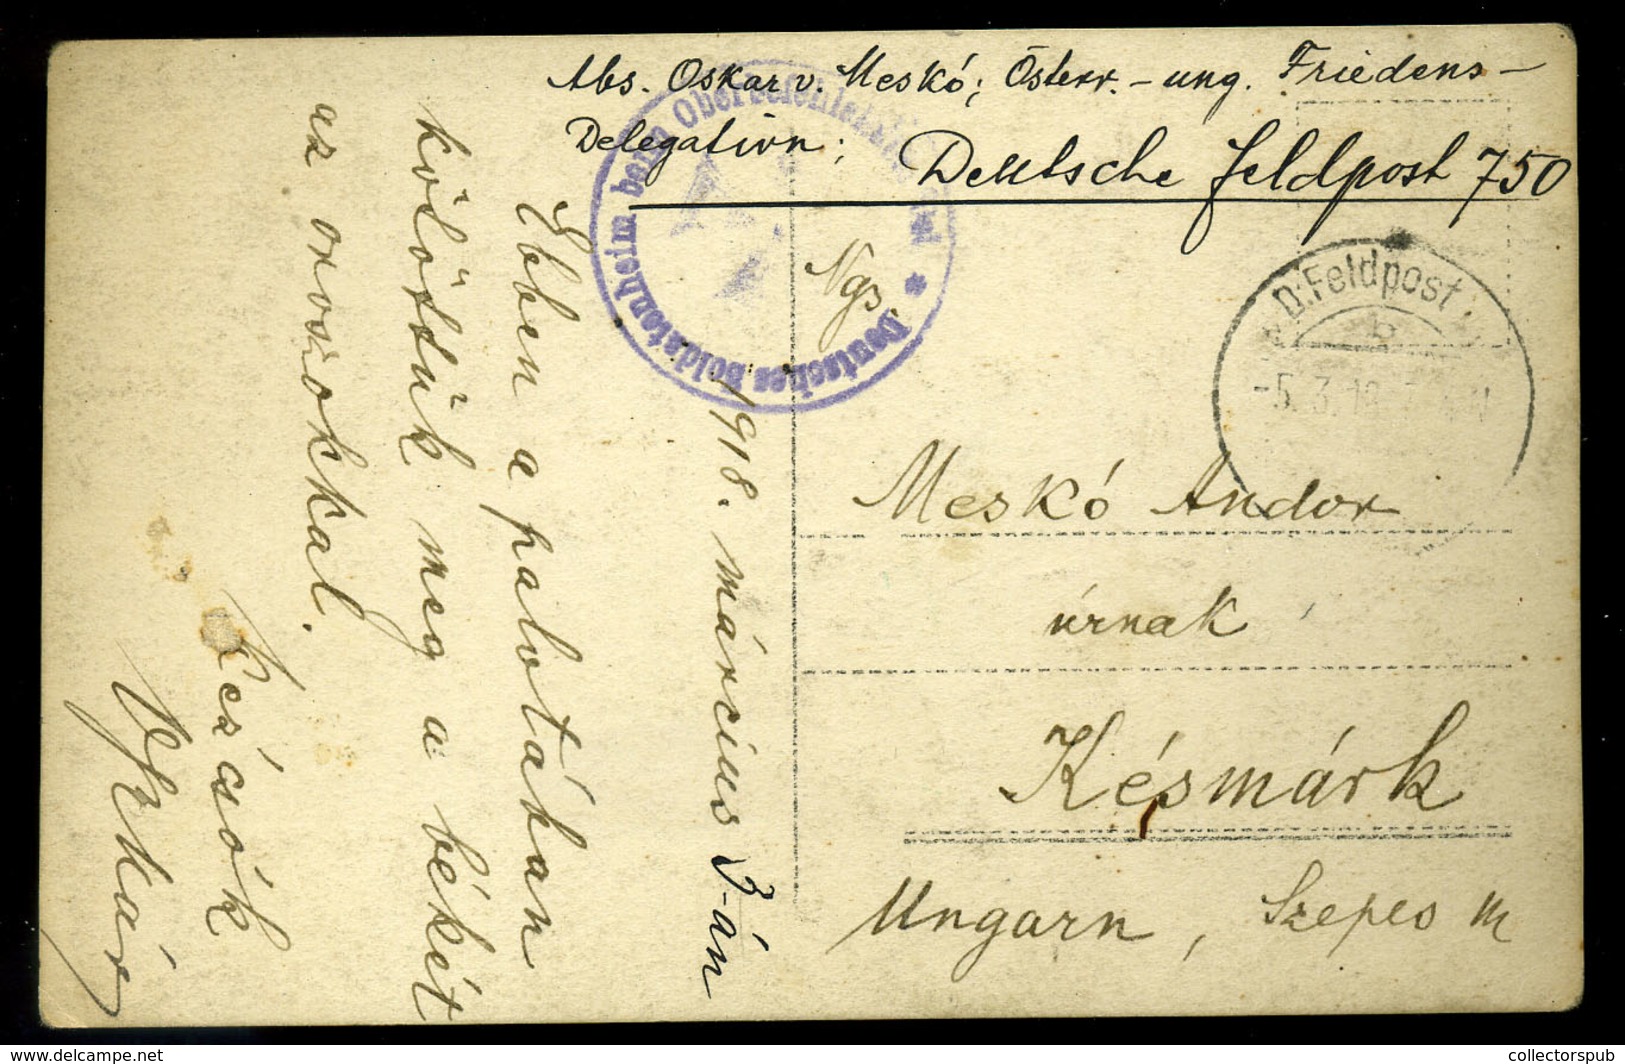 Abs. Oskar v. Meskó; Österr.-ung. Friedens-
Delegation; Deutsche Feldpost 750
Deutsches Soldatenheim beim Oberbefehlshaber *
D. Feldpost
b
-5.3.18
Ngs.
Meskó Andor
úrnak
Késmárk
Ungarn, Szepes m
1918. március 3-án
Ebben a palotában
kötöttük meg a békét
az oroszokkal.
Kezécsók
Oszkár
collectorspub